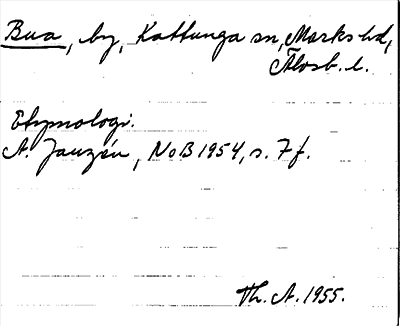 Bua, by, Kattunga sn, Marks hd,
Älvsb. l.
Etymologi.
A. Janzén, NoB 1954, s. 7 f.
Th. A. 1955.